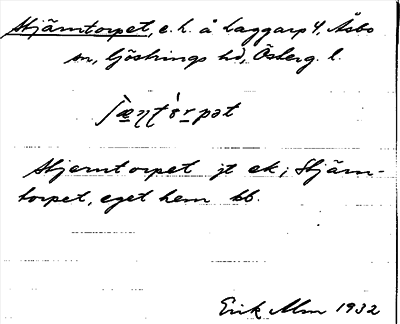 Stjärntorpet, e. h. å Laggarp 4, Åsbo
sn, Göstrings hd, Österg. l.
ʃæ̠ɳtɔ̀r̠pət
Stjerntorpet jt ek; Stjärn-
torpet, eget hem bb.
Erik Alm 1932